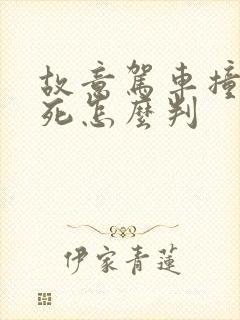 故意駕車撞
死怎麼判
伊家青蓮